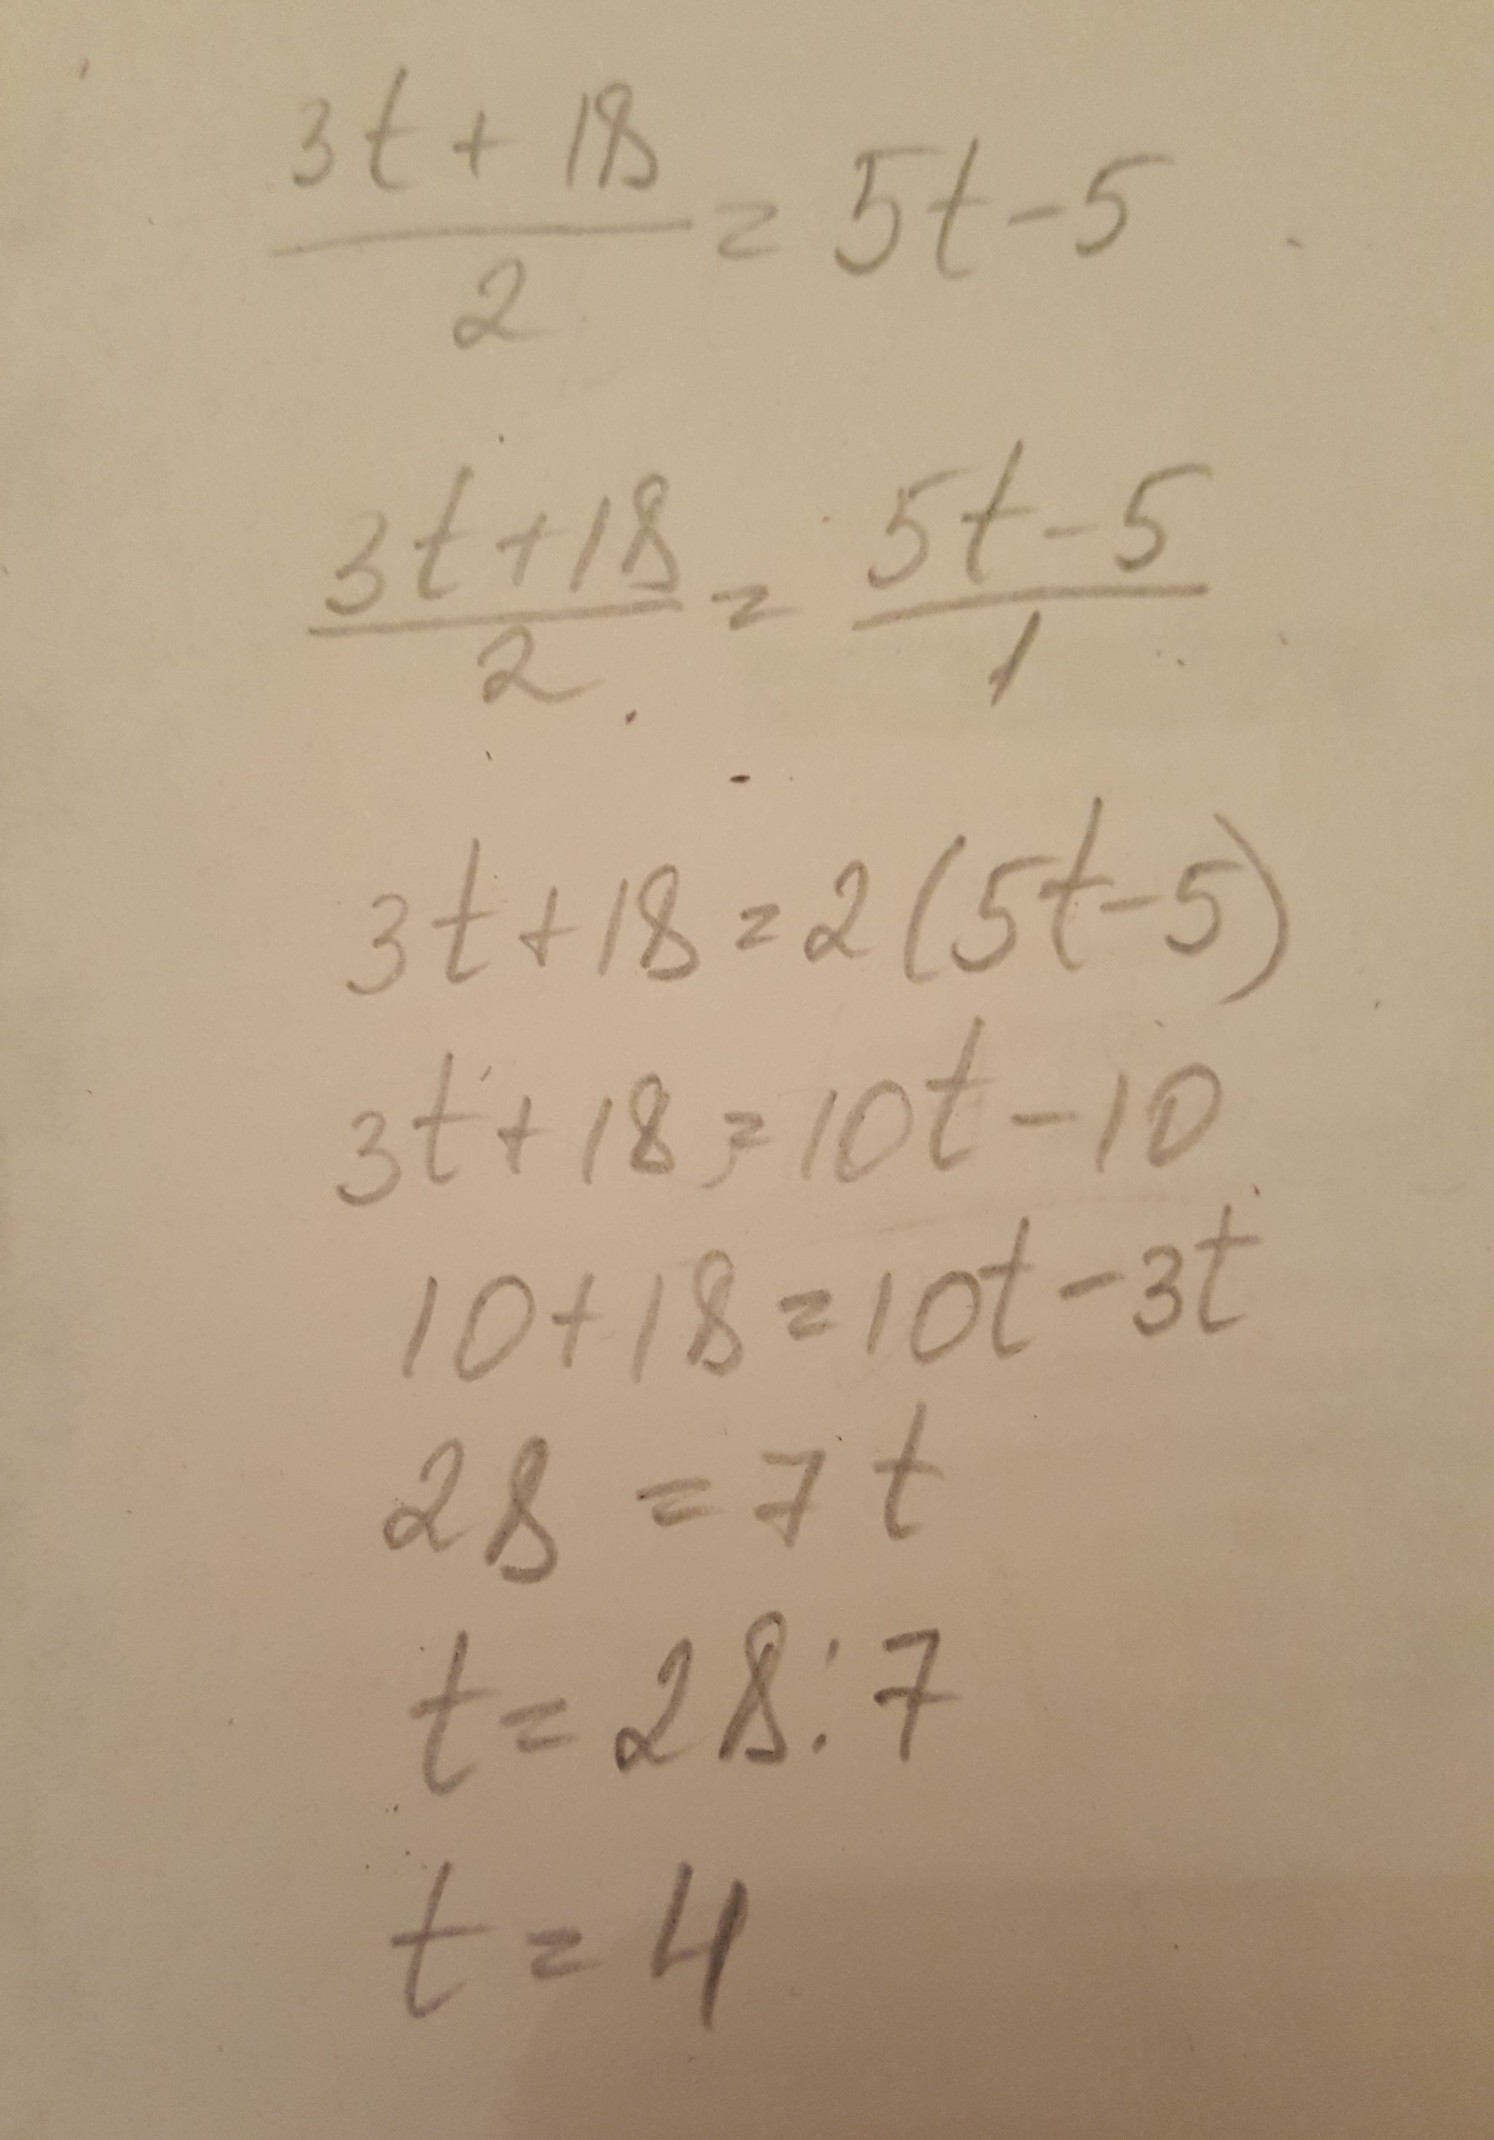 3t + 18 / 2 = 5t - 5
3t + 18 / 2 = 5t - 5 / 1
3t + 18 = 2 (5t - 5)
3t + 18 = 10t - 10
10 + 18 = 10t - 3t
28 = 7t
t = 28 : 7
t = 4